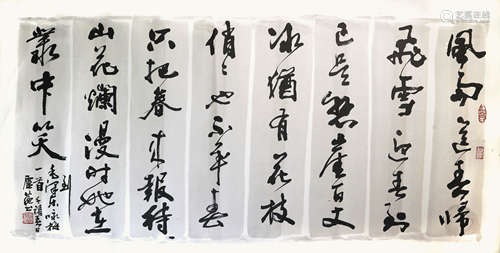 風雨送春歸
飛雪迎春到
已是懸崖百丈
冰猶有花枝
俏俏也不爭春
只把春來報待
山花爛漫時她在
叢中笑